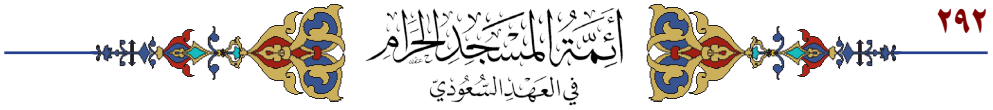 ٢٩٢
أَئِمَّةُ المَسْجِدِ الحَرَامِ
في العَهْدِ السُّعُوْدِيِّ